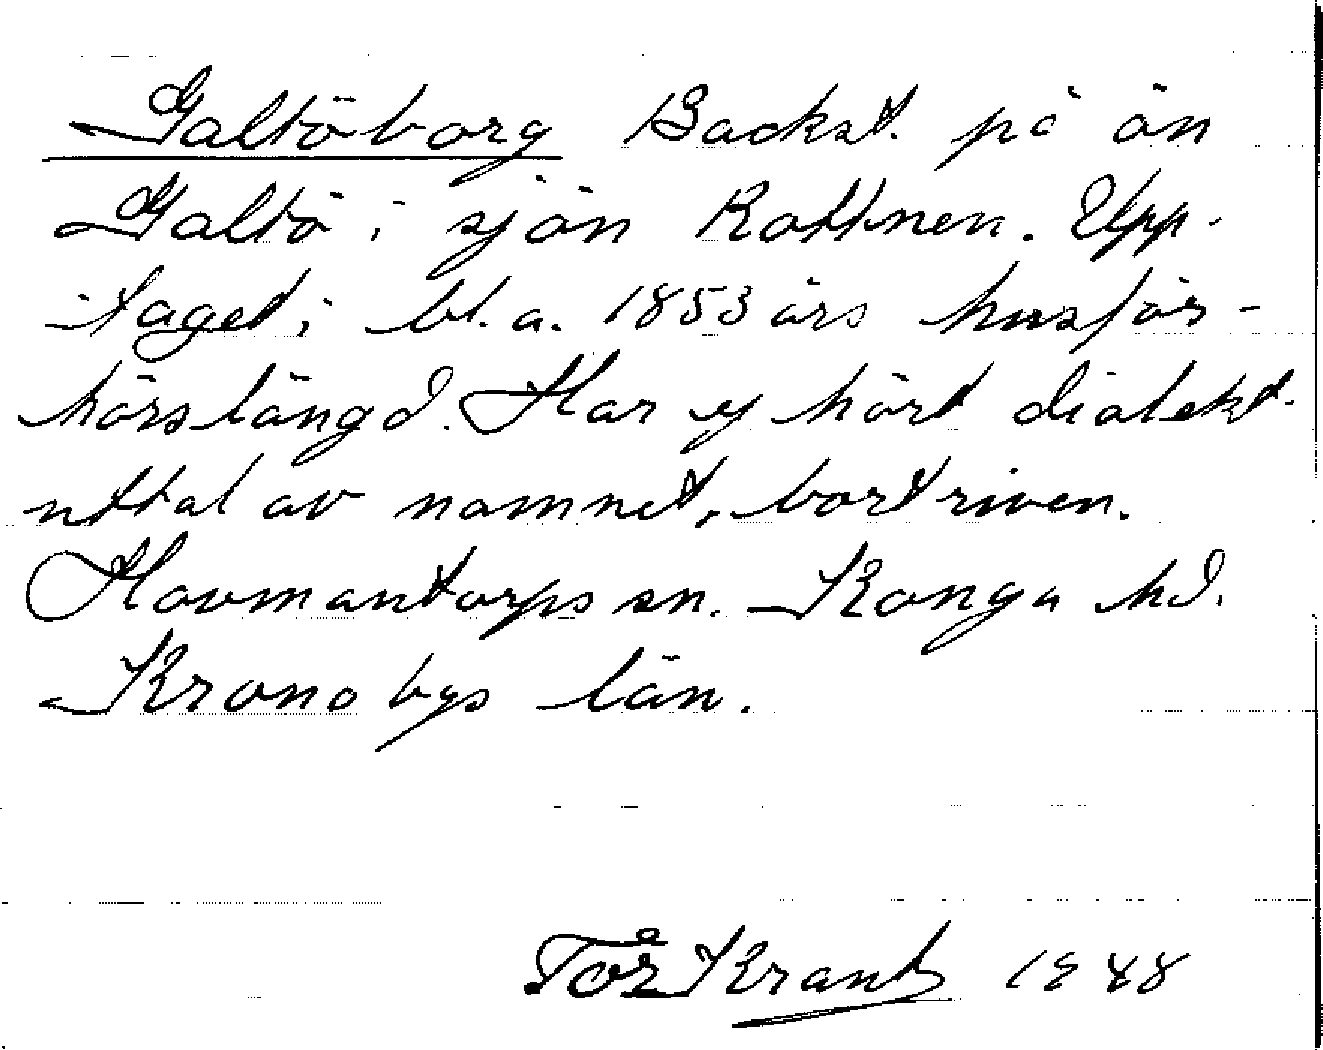 Galtöborg Backst. på ön
Galtö i sjön Rottnen. Upp-
taget i bl. a. 1853 års husför-
hörslängd. Har ej hört dialekt-
uttal av namnet, bortriven.
Hovmantorps sn. Konga hd.
Kronobgs län.
Krantz 1948